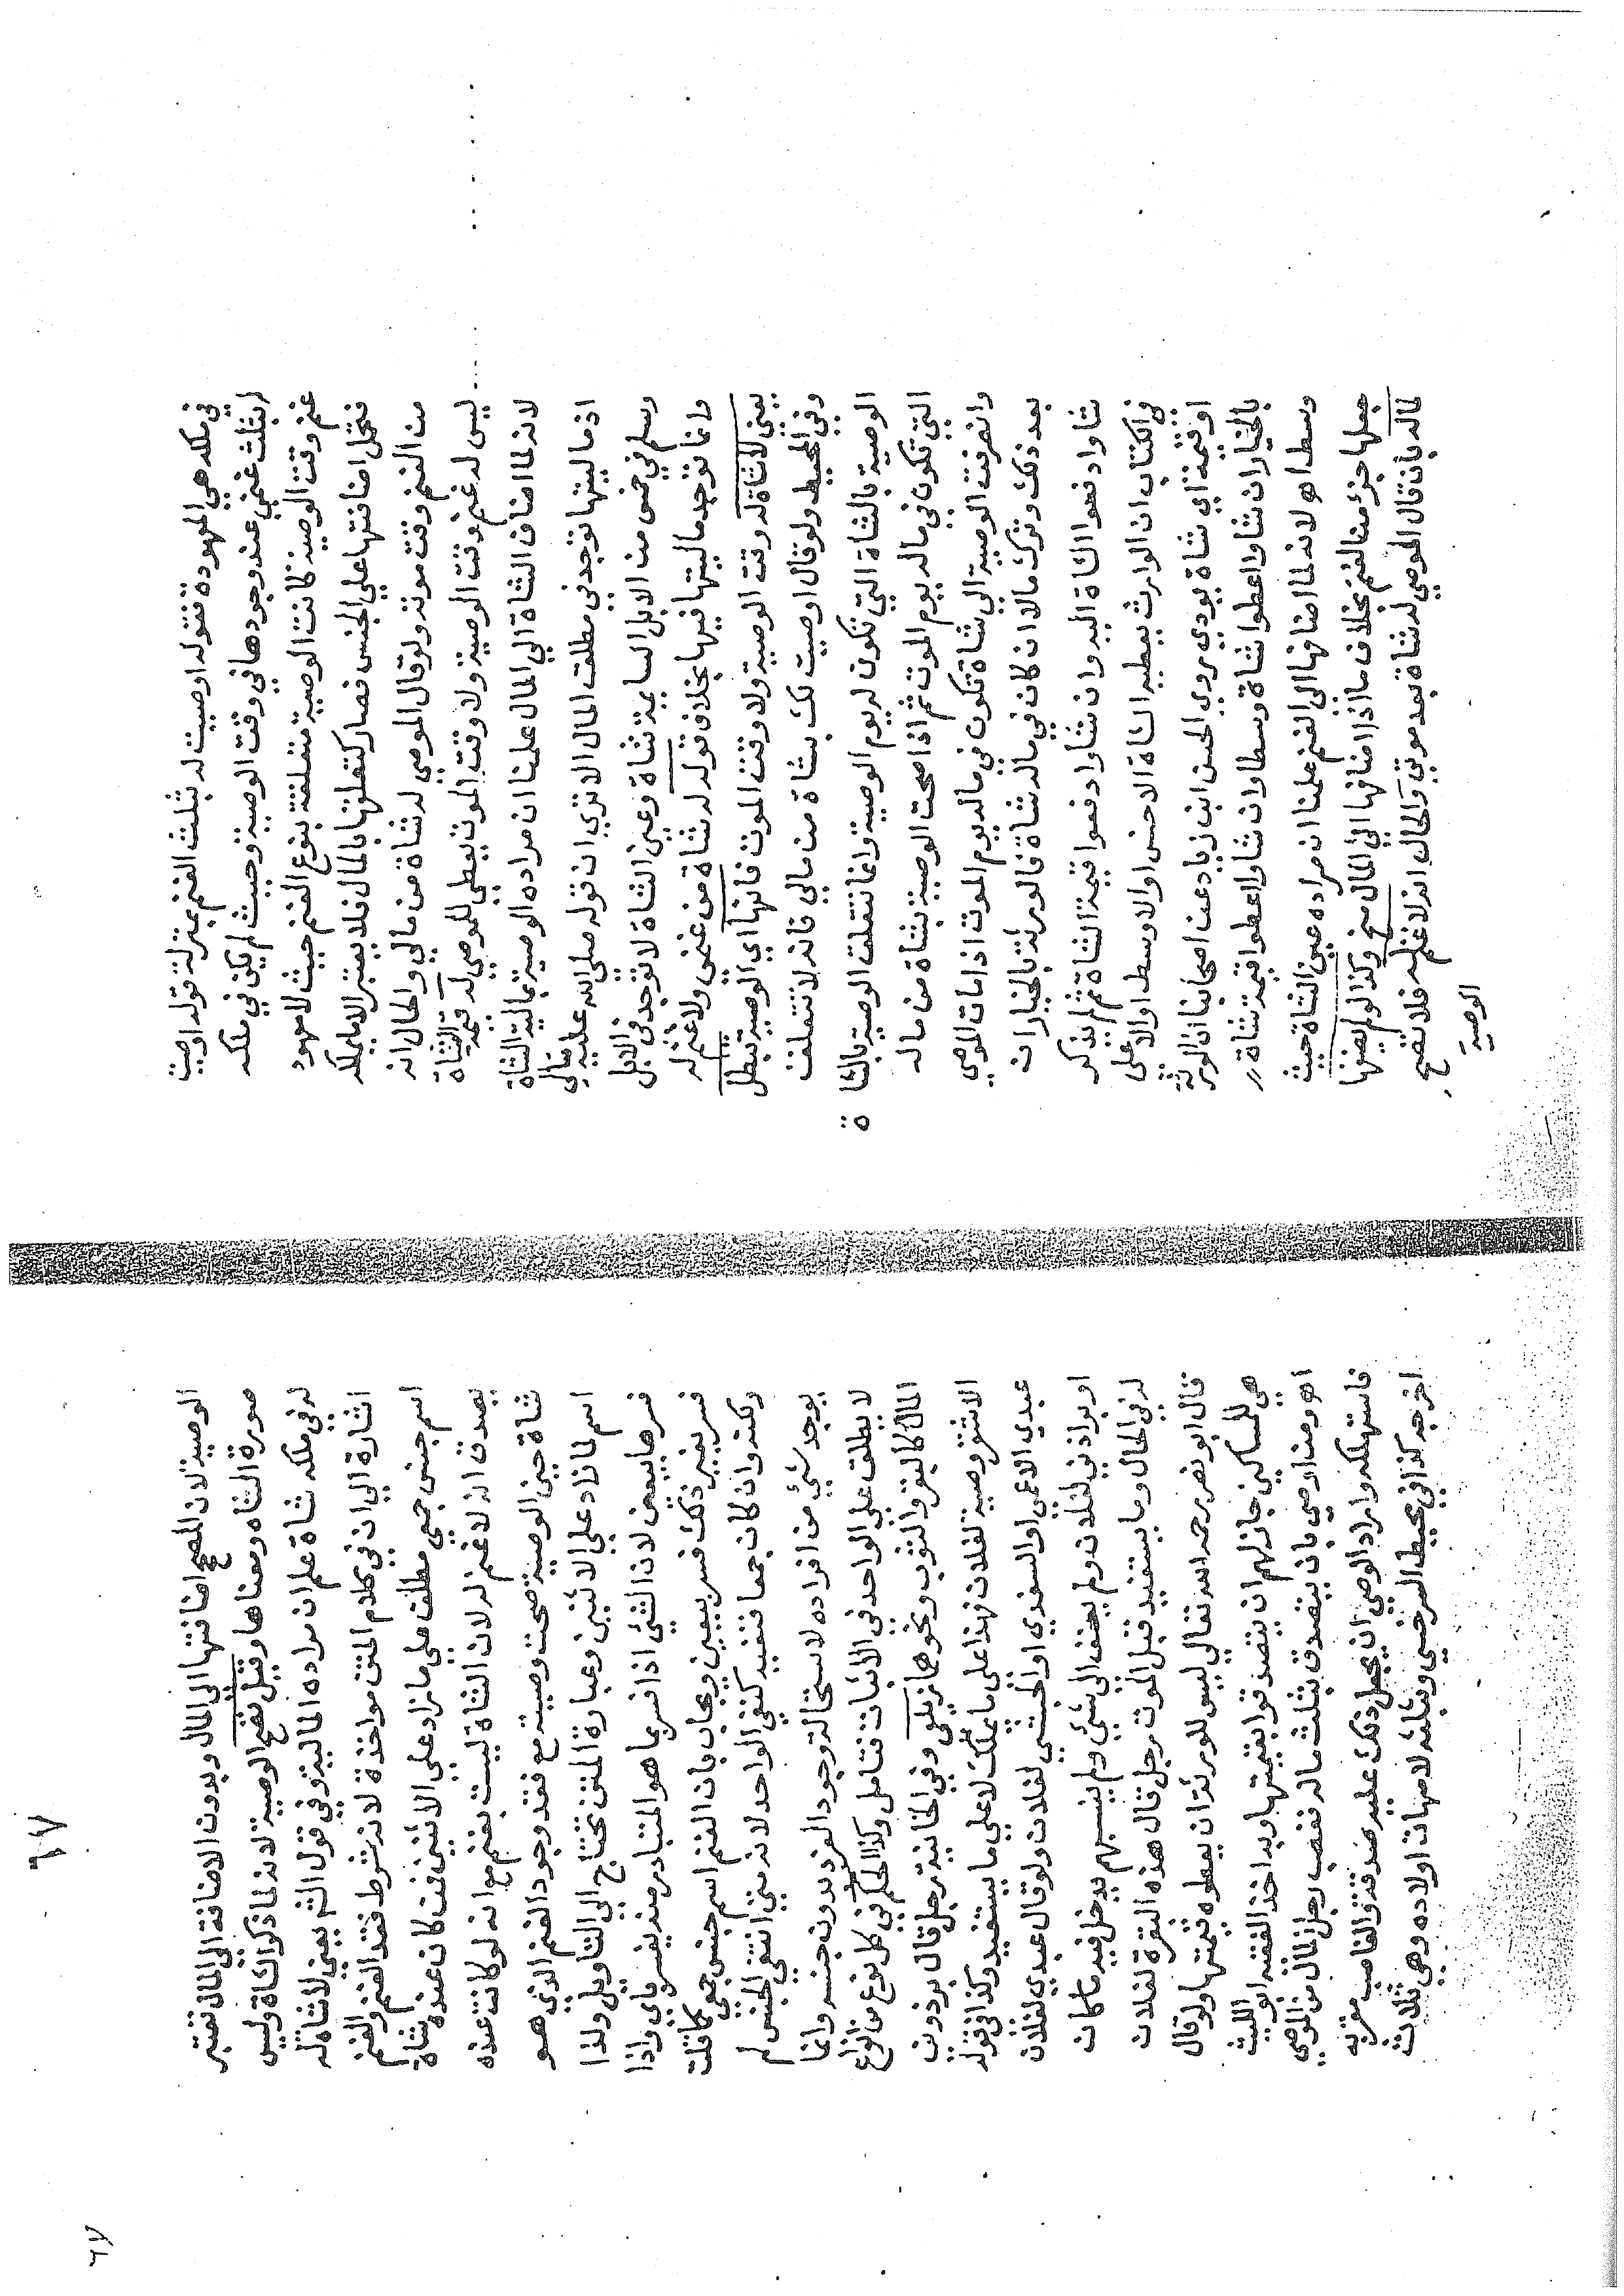 في ملكه هي المعهودة فقوله اوصيت له بثلث الغنم بمنزلة قوله اوصيت
له بثلث غنمي عند وجودها في وقت الوصية وحيث لم يكن في ملكه
غنم وقت الوصية كانت الوصية متعلقة بنوع الغنم حيث لا معهود
فتحمل اضافتها على الجنس فصار كتعلقها بالمال فلا يعتبر الا ما يملكه
من الغنم وقت موته ولو قال الموصي له شاة من مالي والحال انه
ليس له غنم وقت الوصية ولا وقت الموت يعطى للموصي له قيمة الشاة
لانه لما اضاف الشاة الي المال علمنا ان مراده الوصية بمالية الشاة
اذ ماليتها توجد في مطلق المال الا تري ان قوله صلى الله عليه تعالي
وسلم في خمس من الابل السايمة شاة وعين الشاة لا توجد في الابل
وانما توجد ماليتها فيها بخلاف قوله له شاة من غنمي ولا غنم له
يعني لا شاة له وقت الوصية ولا وقت الموت فانها اي الوصية تبطل
وفي المحيط ولو قال اوصيت لك بشاة من مالي فانه لا تتعلق
الوصية بالشاة التي تكون له يوم الوصية وانما تتعلق الوصية بالشاة
التي تكون في ماله يوم الموت ثم اذا صحت الوصية بشاة من ماله
وانصرفت الوصية الي شاة تكون في ماله يوم الموت اذا مات الموصي
بعد ذلك وترك مالا ان كان في ماله شاة فالورثة بالخيار ان
شاوا دفعوا الشاة اليه وان شاوا دفعوا قيمة الشاة ثم لم يذكر
في الكتاب ان الوارث يعطيه الشاة الاحسن او الاوسط او الاعلى
او قيمة اي شاة يودي يروي الحسن ابن زياد عن اصحابنا ان الورثة
بالخيار ان شاوا اعطوا شاة وسطا وان شاوا اعطوا قيمة شاة
وسط اهـ لانه لما اضافها الى الغنم علمنا ان مراده عين الشاة حيث
جعلها جزء من الغنم بخلاف ما اذا اضافها الي المال منح وكذا لو لم يضفها
لماله بان قال الموصي له شاة بعد موتي والحال انه لا غنم له فلا تصح
الوصية
٦٧
الوصية لان المصحح اضافتها الى المال وبدون الاضافة الي المال تعتبر
صورة الشاه ومعناها وقيل تصح الوصية لانه لما ذكر الشاة وليس
له في ملكه شاة علم ان مراده المالية وفي قول الشم يعني لا شاة له
اشارة الي ان في كلام المتن مواخذة لانه شرط فقد الغنم والغنم
اسم جنس جمعي مطلق علي ما زاد على الاثنين فمن كان عنده شاة
يصدق انه لا غنم له لان الشاة ليست بغنم مع انه لو كانت عنده
شاة حين الوصية صحت وصيته مع فقد وجود الغنم الذي هو
اسم لما زاد علي الاثنين وعبارة المتن تحتاج الي التاويل ولذا
فسرها ببعض لان الشي اذا فسر بما هو المتبادر منه يفسر باي واذا
فسر بغير ذلك فسر بيعني ويجاب بان الغنم اسم جنس جمعي كما قلت
ولكنه وان كان جمعا فنفيه كنفي الواحد لانه متي انتفي الجنس لم
يوجد شي من افراده لاستحالة وجود الفرد بدون جنسه وانما
لا يطلق علي الواحد في الاثبات فتامل وكذا الحكم في كل نوع من انواع
المال كالبقر والثوب ونحوهما زيلعي وفي الخانية رجل قال برذوني
الاشقر وصية لفلان فهذا علي ما يملك لا علي ما يستفيد وكذا في قوله
عبدي الاعمى او السندي او الحبشي لفلان ولو قال عبدي لفلان
او براذيني لفلان ولم يضف الي شي ولم ينسبهم يدخل فيه ما كان
له في الحال وما يستفيد قبل الموت رجل قال هذه البقرة لفلان
قال ابو نصر رحمه الله تعالي ليس للورثة ان يعطوه قيمتها ولو قال
هي للمساكين جاز لهم ان يتصدقوا بقيمتها وبه اخذ الفقيه ابو الليث
اهـ ومن اوصي بان يتصدق بثلث ماله فغصب رجل المال من الوصي
فاستهلكه واراد الوصي ان يجعل ذلك عليه صدقة والغاصب مقر به
اخرجه كذا في محيط السرخسي وبثلثه لامهات اولاده وهي ثلاث